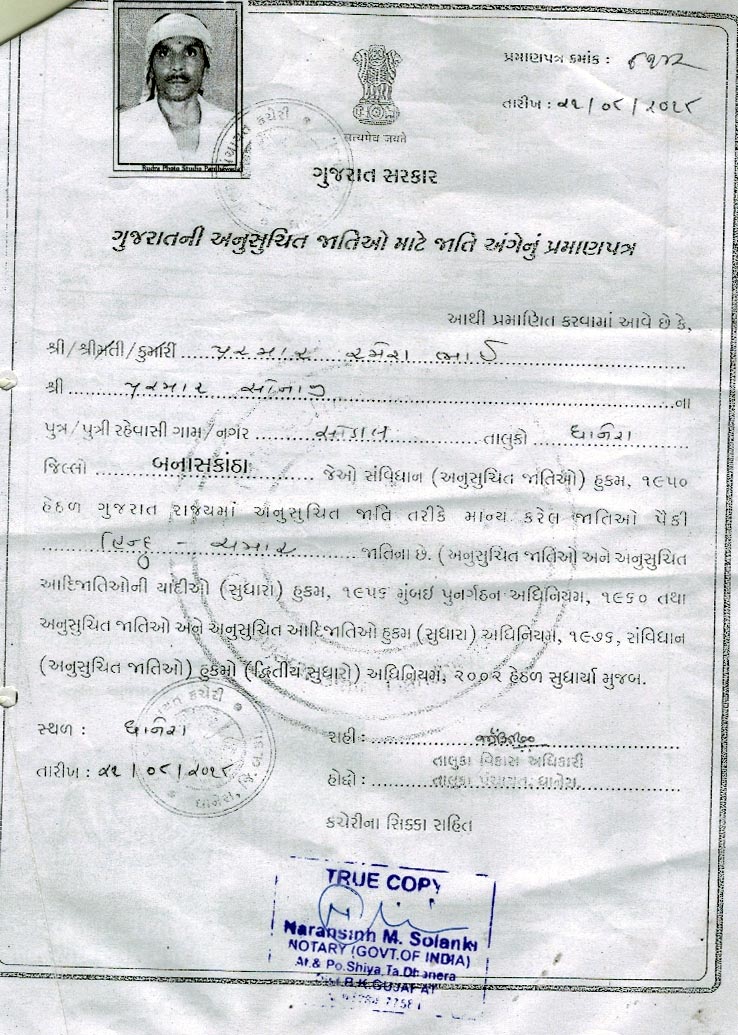 Rudra Photo Studio
પ્રમાણપત્ર ક્રમાંક :
તારીખ :
सत्यमेव जयते
ગુજરાત સરકાર
ગુજરાતની અનુસુચિત જાતિઓ માટે જાતિ અંગેનું પ્રમાણપત્ર
આથી પ્રમાણિત કરવામાં આવે છે કે,
શ્રી/શ્રીમતી/કુમારી પરમાર રમેશ ભાઈ
શ્રી પરમાર સોનાજી ના
પુત્ર/પુત્રી રહેવાસી ગામ/નગર તાલુકો ધાનેરા
જિલ્લો બનાસકાંઠા જેઓ સંવિધાન (અનુસુચિત જાતિઓ) હુકમ, ૧૯૫૦
હેઠળ ગુજરાત રાજ્યમાં અનુસુચિત જાતિ તરીકે માન્ય કરેલ જાતિઓ પૈકી
હિન્દુ - ચમાર જાતિના છે. (અનુસુચિત જાતિઓ અને અનુસુચિત
આદિજાતિઓની યાદીઓ (સુધારા) હુકમ, ૧૯૫૬ મુંબઈ પુનર્ગઠન અધિનિયમ, ૧૯૬૦ તથા
અનુસુચિત જાતિઓ અને અનુસુચિત આદિજાતિઓ હુકમ (સુધારા) અધિનિયમ, ૧૯૭૬, સંવિધાન
(અનુસુચિત જાતિઓ) હુકમો (દ્વિતીય સુધારો) અધિનિયમ, ૨૦૦૨ હેઠળ સુધાર્યા મુજબ.
સ્થળ : ધાનેરા
તારીખ :
સહી :
તાલુકા વિકાસ અધિકારી
હોદ્દો : તાલુકા પંચાયત, ધાનેરા
કચેરીના સિક્કા સહિત
TRUE COPY
Naransinh M. Solanki
NOTARY (GOVT.OF INDIA)
At.& Po.Shiya,Ta.Dhanera